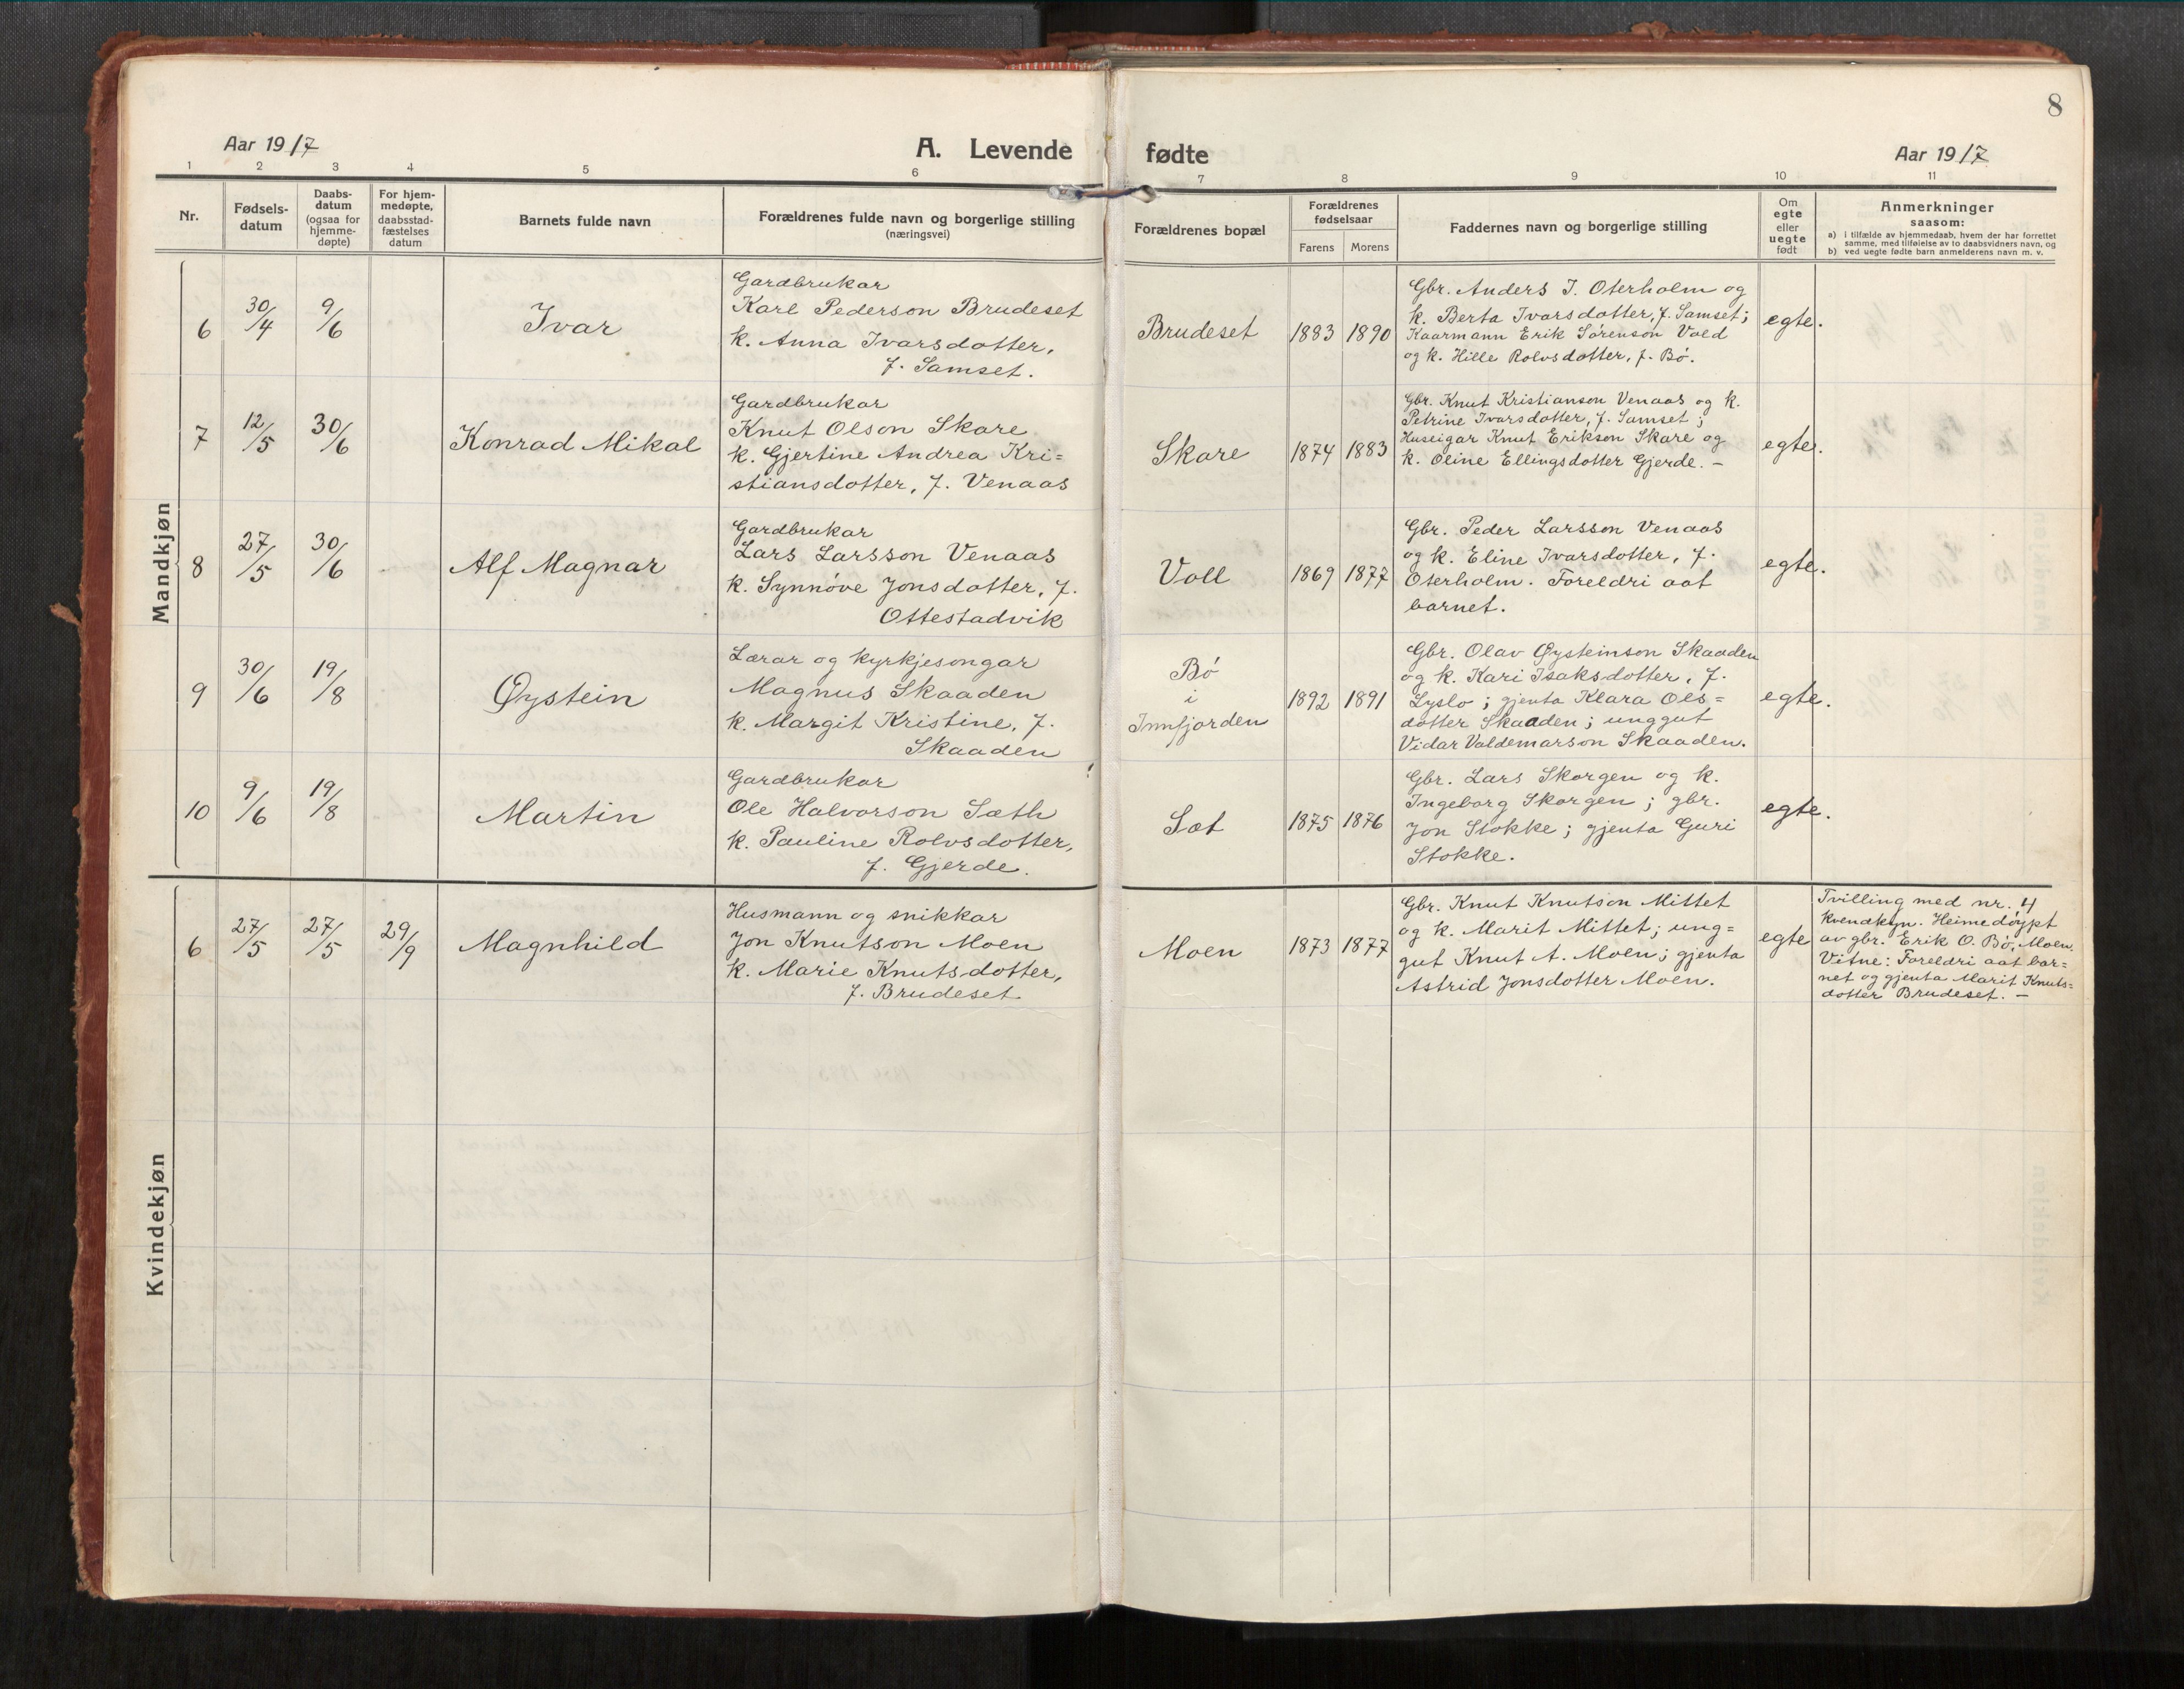 8
Aar 1917
A. Levende
fødte
Aar 1917
1 2 3 4 5 6 7 8 9 10 11
Nr.
Fødsels-
datum
Daabs-
datum
(ogsaa for
hjemme-
døpte)
For hjem-
medøpte,
daabsstad-
fæstelses
datum
Barnets fulde navn
Forældrenes fulde navn og borgerlige stilling
(næringsvei)
Forældrenes bopæl
Forældrenes
fødselsaar
Farens Morens
Faddernes navn og borgerlige stilling
Om
egte
eller
uegte
født
Anmerkninger
saasom:
a) i tilfælde av hjemmedaab, hvem der har forrettet
samme, med tilføielse av to daabsvidners navn, og
b) ved uegte fødte barn anmelderens navn m. v.
Mandkjøn
6
30/4
9/6
Ivar
Gardbrukar
Karl Pederson Brudeset
k. Anna Ivarsdotter,
f. Samset.
Brudeset
1883 1890
Gbr. Anders I. Oterholm og
k. Berta Ivarsdotter, f. Samset;
Kaarmann Erik Sørenson Vold
og k. Hille Rolvsdotter, f. Bø.
egte.
7
12/5
30/6
Konrad Mikal
Gardbrukar
Knut Olson Skare
k. Gjertine Andrea Kri=
stiansdotter, f. Venaas
Skare
1874 1883
Gbr. Knut Kristianson Venaas og k.
Petrine Ivarsdotter, f. Samset;
Huseigar Knut Erikson Skare og
k. Oline Ellingsdotter Gjerde. -
egte.
8
27/5
30/6
Alf Magnar
Gardbrukar
Lars Larsson Venaas
k. Synnøve Jonsdotter, f.
Ottestadvik
Voll
1869 1877
Gbr. Peder Larsson Venaas
og k. Eline Ivarsdotter, f.
Oterholm. Foreldri aat
barnet.
egte.
9
30/6
19/8
Øystein
Lærar og kyrkjesongar
Magnus Skaaden
k. Margit Kristine, f.
Skaaden
Bø
i
Innfjorden
1892 1891
Gbr. Olav Øysteinson Skaaden
og k. Kari Isaksdotter, f.
Lyslo; gjenta Klara Ols=
dotter Skaaden; unggut
Vidar Valdemarson Skaaden.
egte.
10
9/6
19/8
Martin
Gardbrukar
Ole Halvorson Sæth
k. Pauline Rolvsdotter,
f. Gjerde.
Sæt
1875 1876
Gbr. Lars Skorgen og k.
Ingeborg Skorgen; gbr.
Jon Stokke; gjenta Guri
Stokke.
egte.
Kvindekjøn
6
27/5
27/5
29/9
Magnhild
Husmann og snikkar
Jon Knutson Moen
k. Marie Knutsdotter,
f. Brudeset
Moen
1873 1877
Gbr. Knut Knutson Mittet
og k. Marit Mittet; ung=
gut Knut A. Moen; gjenta
Astrid Jonsdotter Moen.
egte
Tvilling med nr. 4
kvendkyn. Heimedøypt
av gbr. Erik O. Bø, Moen.
Vitne: Foreldri aat bar=
net og gjenta Marit Knuts=
dotter Brudeset. -